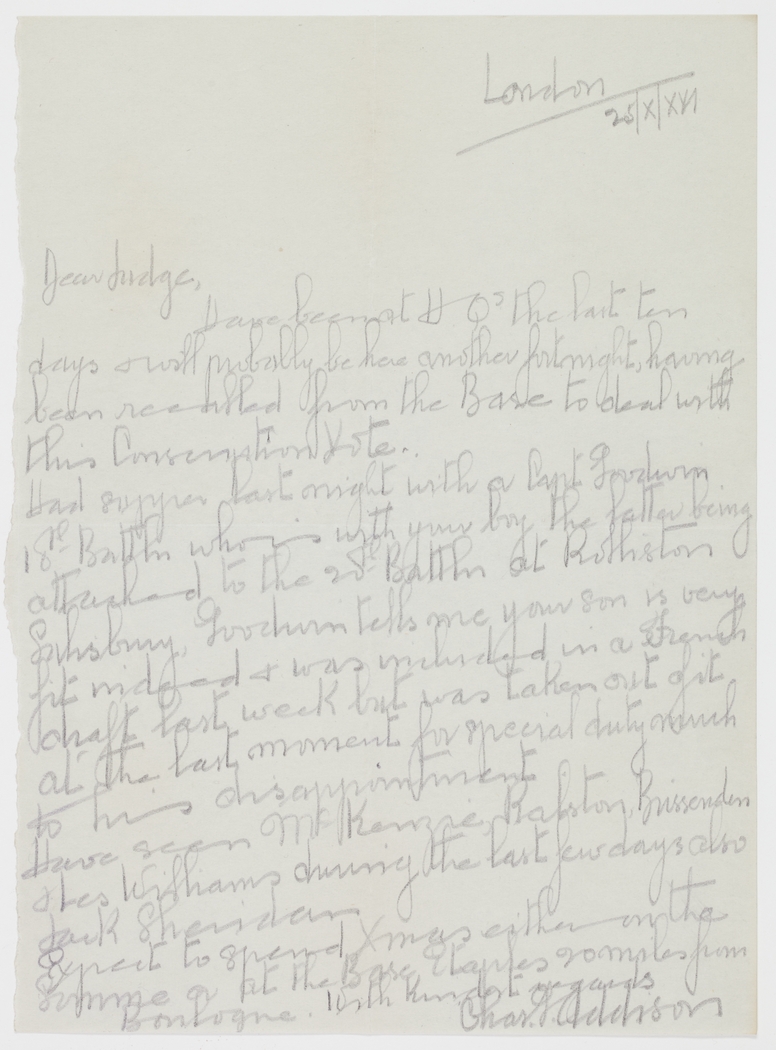 London
25|X|XVI
Dear Judge,
Have been at H Qs the last ten
days & will probably be here another fortnight, having
been recalled from the Base to deal with
this Conscription Vote.
Had supper last night with a Capt Goodwin
18th Battln who is with your boy the latter being
attached to the 20th Battln at Rollestone
Salisbury. Goodwin tells me your son is very
fit indeed & was included in a French
draft last week but was taken out of it
at the last moment for special duty much
to his disappointment
Have seen McKenzie, Ralston, Brissenden
& Les Williams during the last few days also
Jack Sheridan
Expect to spend Xmas either on the
Somme or at the Base Etaples 20 miles from
Boulogne. With kindest regards
Chas. Addison